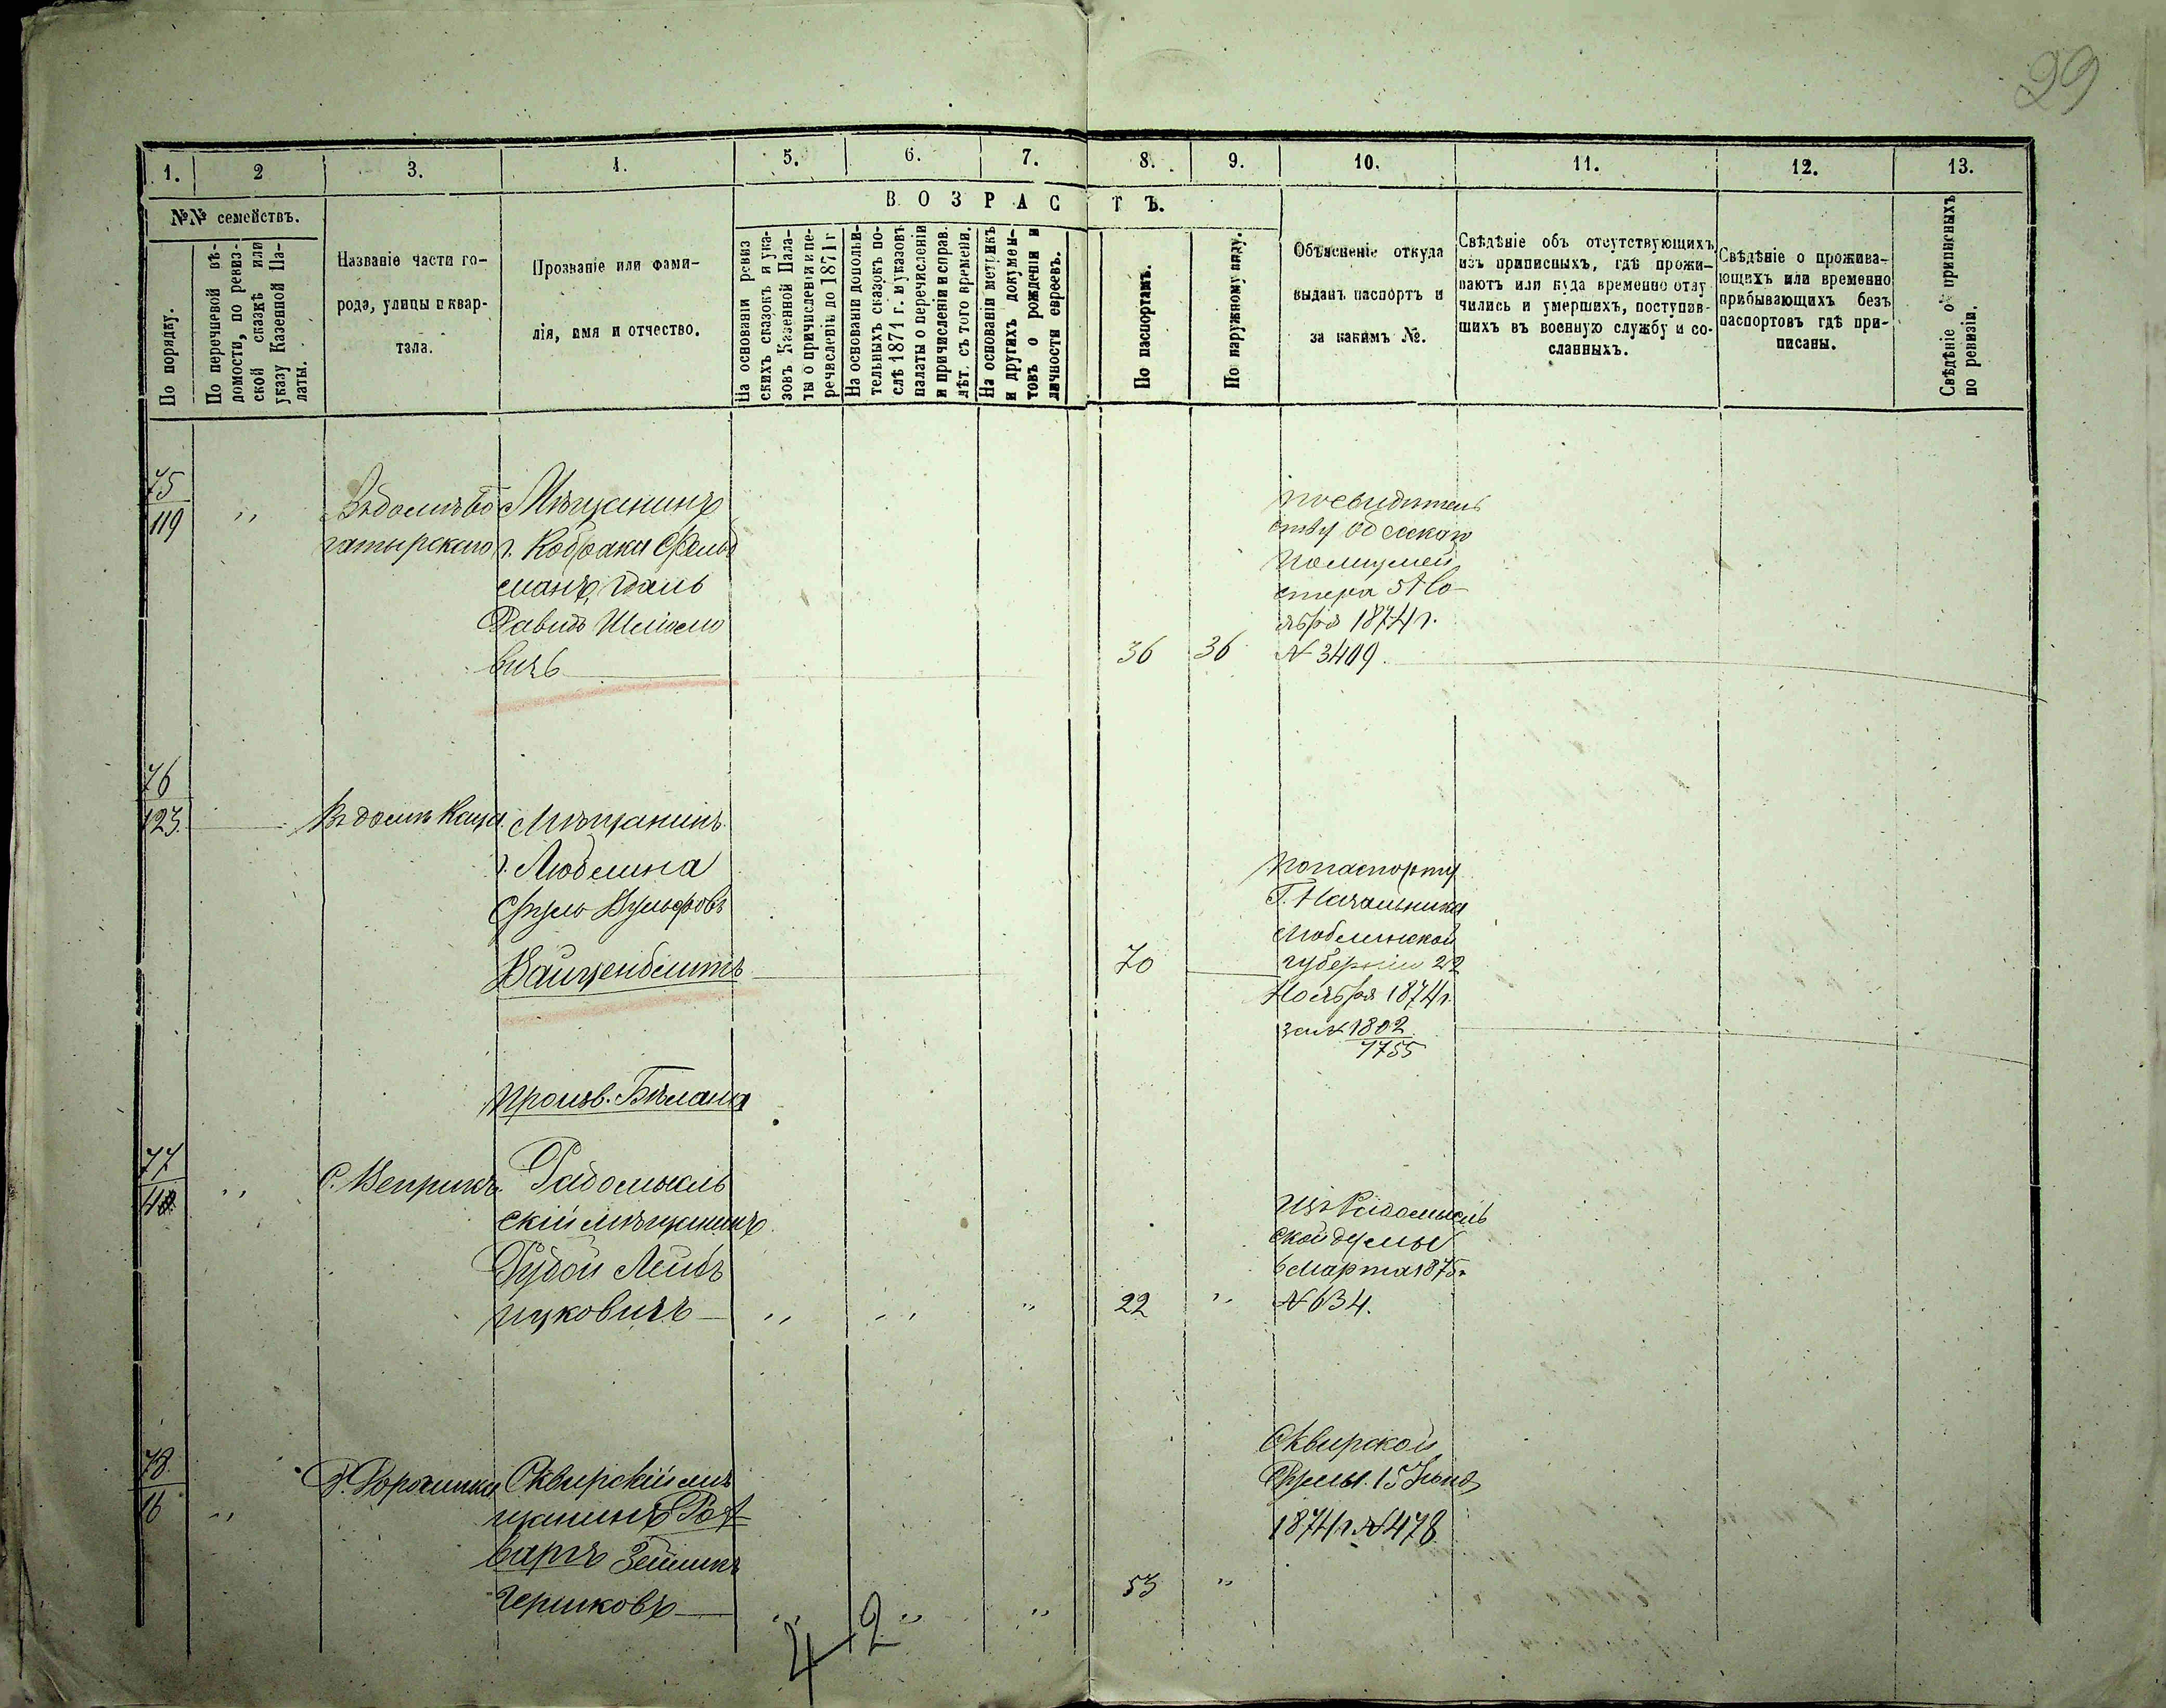 29
1.
2
3.
4.
5.
6.
7.
8.
9.
10.
11.
12.
13.
№№ семействъ.
По порядку.
По перечневой вѣ-
домости, по ревиз-
ской сказкѣ или
указу Казенной Па-
латы.
Названіе части го-
рода, улицы и квар-
тала.
Прозваніе или фами-
лія, имя и отчество.
ВОЗРАСТЪ.
На основаніи ревиз
скихъ сказокъ и ука-
зовъ Казенной Пала-
ты о причисленіи и пе-
речисленіи до 1871 г
На основаніи дополни-
тельныхъ сказокъ по-
слѣ 1871 г. и указовъ
палаты о перечисленіи
и причисленіи и справ.
лѣт. съ того времени.
На основаніи метрикъ
и другихъ докумен-
товъ о рожденіи и
личности евреевъ.
По паспортамъ.
По наружному виду.
Объясненіе откуда
выданъ паспортъ и
за какимъ №.
Свѣдѣніе объ отсутствующихъ
изъ приписныхъ, гдѣ прожи-
ваютъ или куда временно отлу
чились и умершихъ, поступив-
шихъ въ военную службу и со-
сланныхъ.
Свѣдѣніе о прожива-
ющихъ или временно
прибывающихъ безъ
паспортовъ гдѣ при-
писаны.
Свѣдѣніе о приписныхъ
по ревизіи.
75
119
"
Мѣщанинъ
г. Кобраки Фельд
манъ,
Давидъ Шлiомо
вичъ
36
36
По свидѣтель
ству Одесскаго
Полицмей
стера 5 Но-
ября 1874 г.
№ 3409.
76
123.
Въ домѣ Каца
Мѣщанинъ
г. Люблина
Сруль Вульфовъ
Вайценблитъ
70
По паспорту
Г. Начальника
Люблинской
губерніи 22
Ноября 1874 г.
за № 1802
1755
77
С. Веприкъ
Радомысль
скій мѣщанинъ
Рудой Лейбъ
Ицковичъ
"
"
"
22
"
Изъ Радомысль
ской думы
6 Марта 1875 г.
№ 634.
78
16
"
Сквирскій мѣ
щанинъ Рот
баргъ Зейликъ
Гершковъ
"
"
"
53
"
Сквирской
Думы. 15 Іюня
1874 г. № 478
42